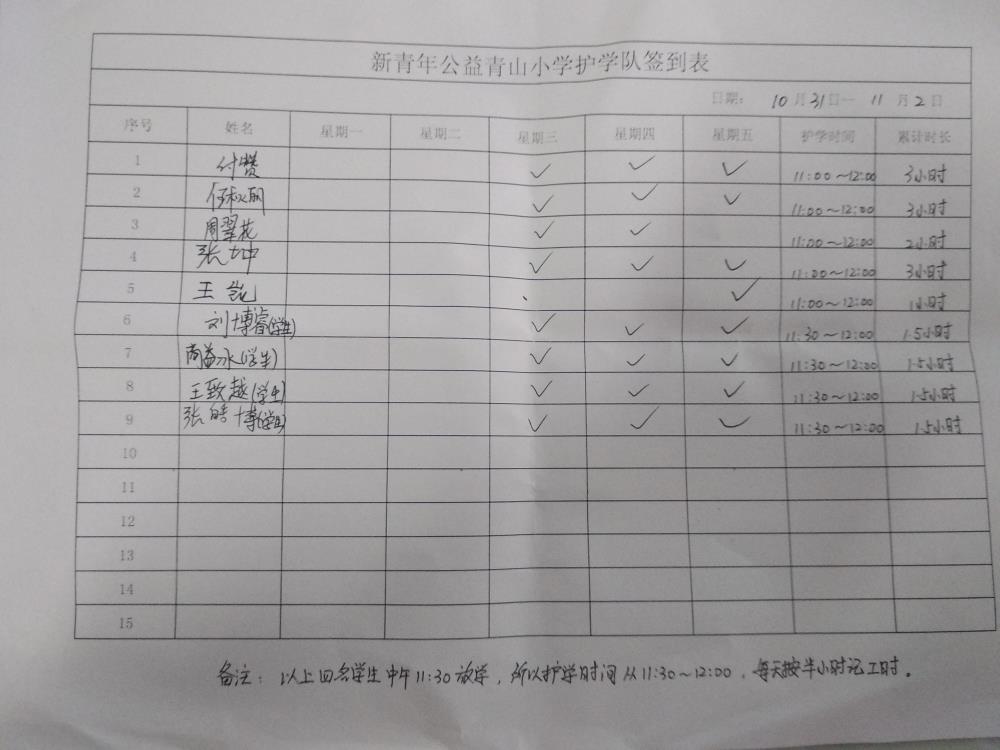 新青年公益青山小学护学队签到表
日期： 10月31日—11月2日
序号 姓名 星期一 星期二 星期三 星期四 星期五 护学时间 累计时长
1 付赞 ✓ ✓ ✓ 11:00～12:00 3小时
2 何秋丽 ✓ ✓ ✓ 11:00～12:00 3小时
3 周翠花 ✓ ✓ 11:00～12:00 2小时
4 张坤 ✓ ✓ ✓ 11:00～12:00 3小时
5 王 ✓ 11:00～12:00 1小时
6 刘博睿(学生) ✓ ✓ ✓ 11:30～12:00 1.5小时
7 商益冰(学生) ✓ ✓ ✓ 11:30～12:00 1.5小时
8 王致越(学生) ✓ ✓ ✓ 11:30～12:00 1.5小时
9 张皓博(学生) ✓ ✓ ✓ 11:30～12:00 1.5小时
10
11
12
13
14
15
备注：以上四名学生中午11:30放学，所以护学时间从11:30～12:00，每天按半小时记工时。